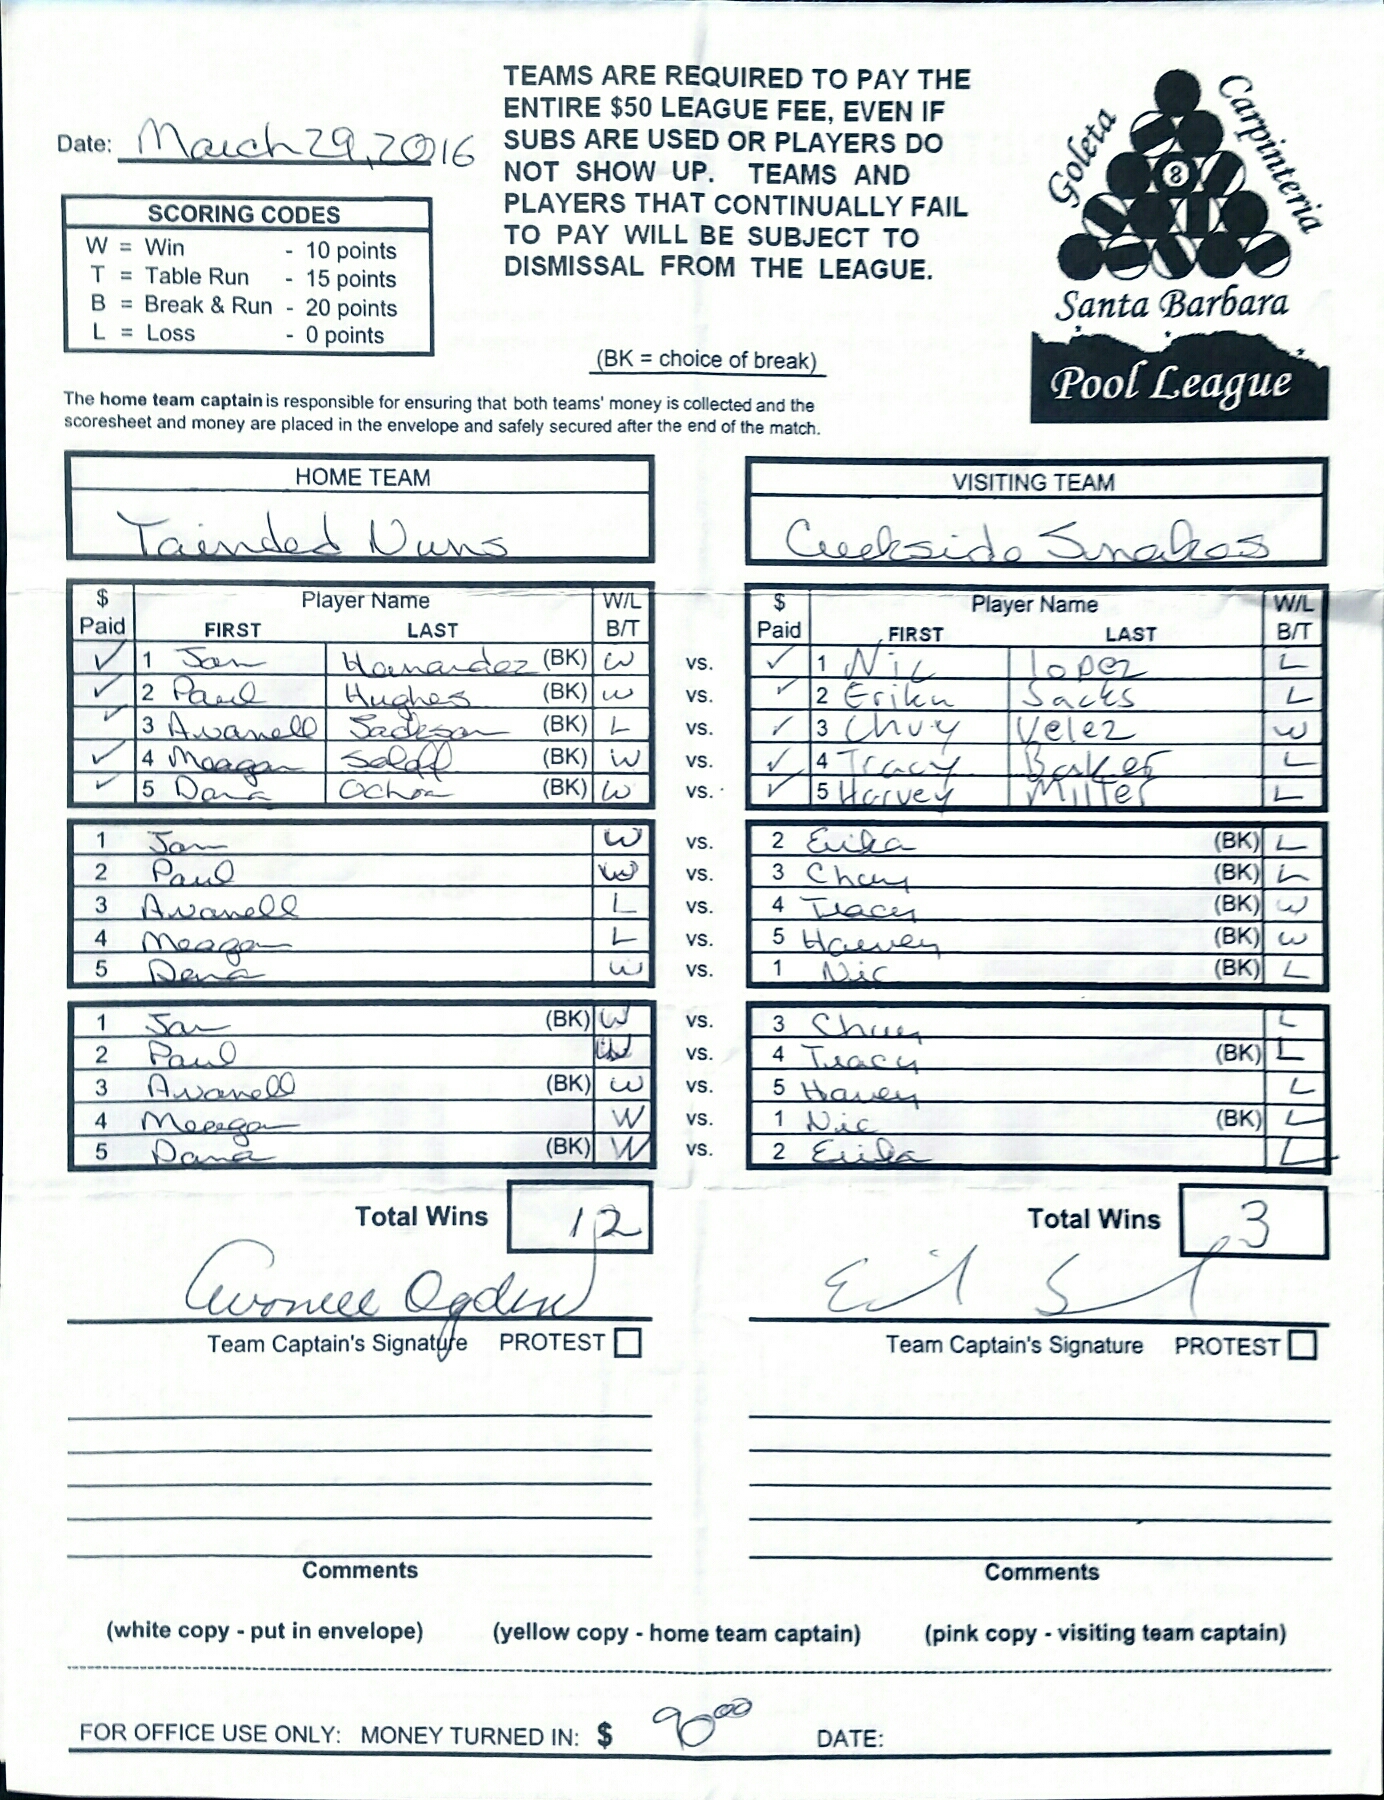 TEAMS ARE REQUIRED TO PAY THE
ENTIRE $50 LEAGUE FEE, EVEN IF
SUBS ARE USED OR PLAYERS DO
NOT SHOW UP. TEAMS AND
PLAYERS THAT CONTINUALLY FAIL
TO PAY WILL BE SUBJECT TO
DISMISSAL FROM THE LEAGUE.
Goleta
Carpinteria
8
Santa Barbara
Pool League
Date: March 29, 2016
SCORING CODES
W = Win - 10 points
T = Table Run - 15 points
B = Break & Run - 20 points
L = Loss - 0 points
(BK = choice of break)
The home team captain is responsible for ensuring that both teams' money is collected and the
scoresheet and money are placed in the envelope and safely secured after the end of the match.
HOME TEAM VISITING TEAM
Tainded Nuns Creekside Snakes
$ Paid Player Name FIRST LAST W/L B/T $ Paid Player Name FIRST LAST W/L B/T
✓ 1 Jan Hernandez (BK) W vs. ✓ 1 Nic lopez L
✓ 2 Paul Hughes (BK) W vs. ✓ 2 Erika Sacks L
✓ 3 Avanell Jackson (BK) L vs. ✓ 3 Chuy Velez W
✓ 4 Meagan (BK) W vs. ✓ 4 Tracy L
✓ 5 Dana Ochoa (BK) W vs. ✓ 5 Harvey Miller L
1 Jan W vs. 2 Erika (BK) L
2 Paul W vs. 3 Chuy (BK) L
3 Avanell L vs. 4 Tracy (BK) W
4 Meagan L vs. 5 Harvey (BK) W
5 Dana W vs. 1 Nic (BK) L
1 Jan (BK) W vs. 3 Chuy L
2 Paul W vs. 4 Tracy (BK) L
3 Avanell (BK) W vs. 5 Harvey L
4 Meagan W vs. 1 Nic (BK) L
5 Dana (BK) W vs. 2 Erika L
Total Wins 12 Total Wins 3
Team Captain's Signature PROTEST Team Captain's Signature PROTEST
Comments Comments
(white copy - put in envelope) (yellow copy - home team captain) (pink copy - visiting team captain)
FOR OFFICE USE ONLY: MONEY TURNED IN: $ 90.00 DATE: